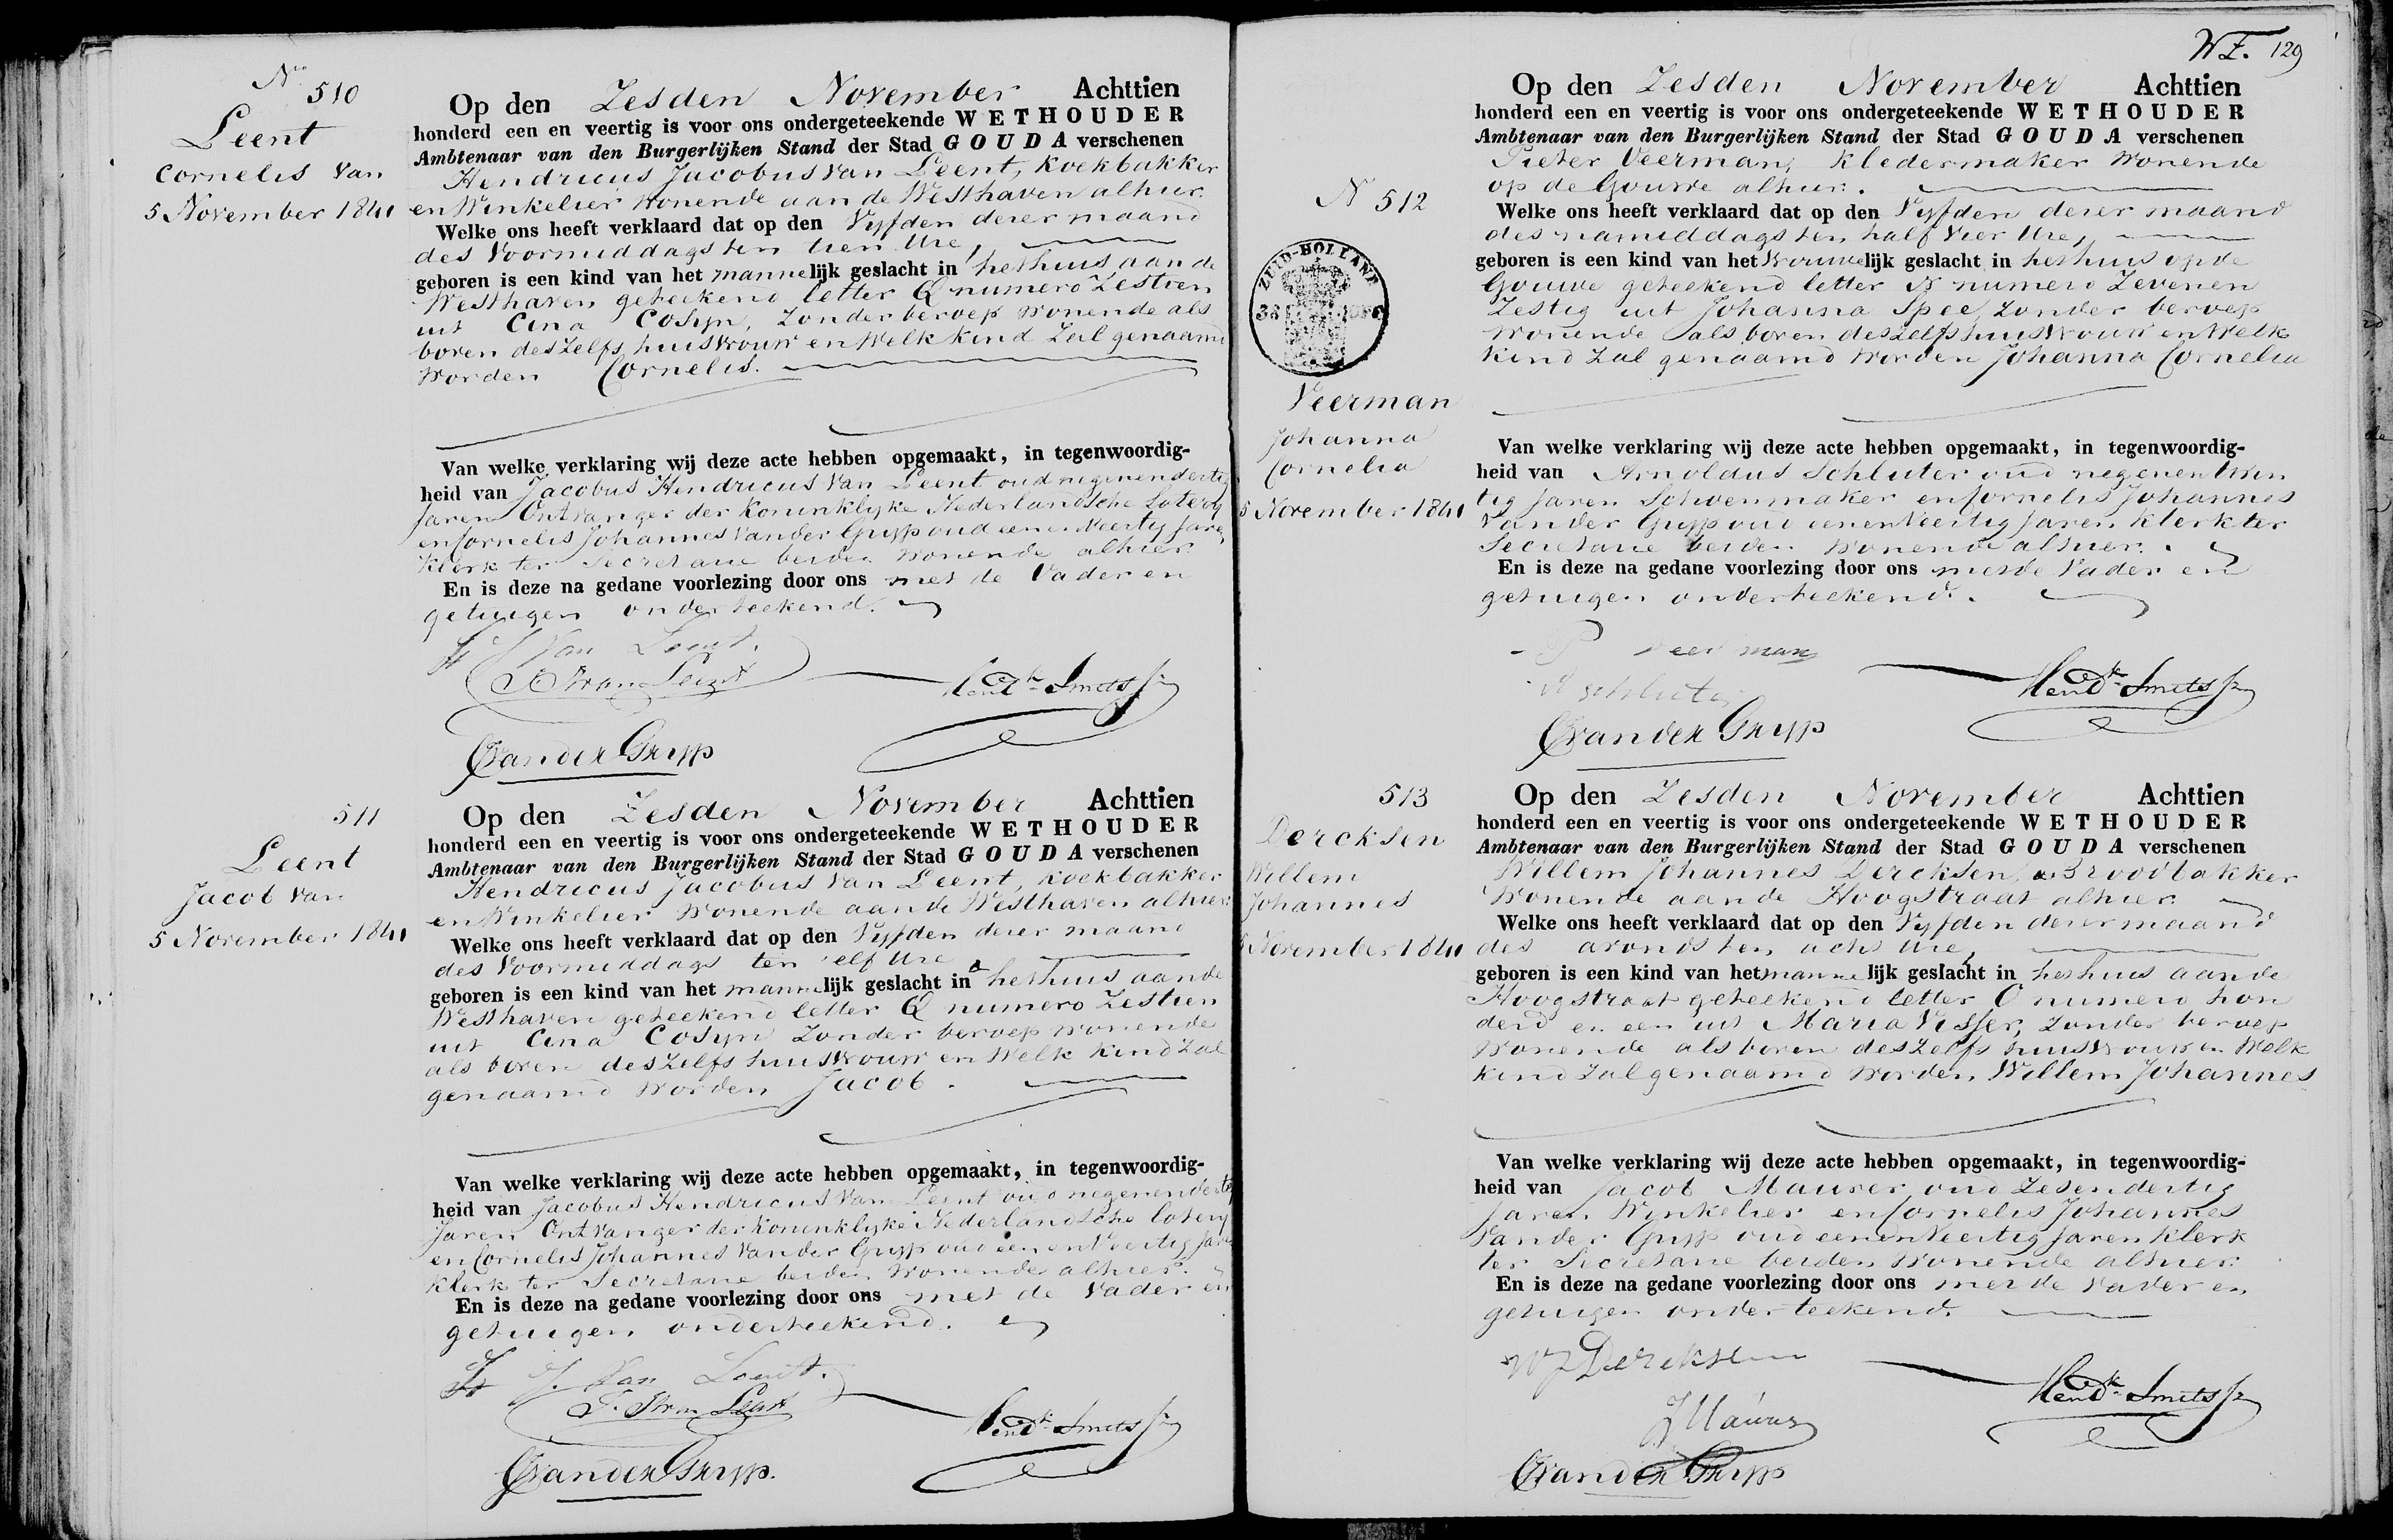 No 510
Leent
Cornelis Van
5 November 1841
Op den Zesden November Achttien
honderd een en veertig is voor ons ondergeteekende WETHOUDER
Ambtenaar van den Burgerlijken Stand der Stad GOUDA verschenen
Hendricus Jacobus Van Leent, Koekbakker
en Winkelier Wonende aan de Westhaven alhier.
Welke ons heeft verklaard dat op den Vyfden dezer maand
des Voormiddags ten tien Ure,
geboren is een kind van het mannelijk geslacht in het huis aan de
Westhaven geteekend letter Q numero Zestien
uit Cina Cosyn, Zonder beroep Wonende als
boven deszelfs huisvrouw en Welk Kind Zal genaamd
Worden Cornelis.
Van welke verklaring wij deze acte hebben opgemaakt, in tegenwoordig-
heid van Jacobus Hendricus Van Leent oud negenendertig
Jaren Ontvanger der Koninklyke Nederlandsche Lotery
en Cornelis Johannes Vander Gryp oud een en Veertig Jaren
Klerk ter Secretarie beiden Wonende alhier
En is deze na gedane voorlezing door ons met de Vader en
getuigen onderteekend.
H J Van Leent.
J H van Leent
Hendk Smits Jz
CJvander Gryp
511
Leent
Jacob Van
5 November 1841
Op den Zesden November Achttien
honderd een en veertig is voor ons ondergeteekende WETHOUDER
Ambtenaar van den Burgerlijken Stand der Stad GOUDA verschenen
Hendricus Jacobus Van Leent, Koekbakker
en Winkelier Wonende aan de Westhaven alhier.
Welke ons heeft verklaard dat op den Vyfden dezer maand
des Voormiddags ten elf Ure
geboren is een kind van het mannelijk geslacht in het huis aan de
Westhaven geteekend letter Q numero Zestien
uit Cina Cosyn Zonder beroep Wonende
als boven deszelfs huisvrouw en Welk Kind Zal
genaamd Worden Jacob.
Van welke verklaring wij deze acte hebben opgemaakt, in tegenwoordig-
heid van Jacobus Hendricus Van Leent oud negenendertig
Jaren Ontvanger der Koninklyke Nederlandsche lotery
en Cornelis Johannes Vander Gryp oud een en Veertig Jaren
Klerk ter Secretarie beiden Wonende alhier.
En is deze na gedane voorlezing door ons met de Vader en
getuigen onderteekend.
H J. Van Leent.
J. H van Leent
Hendk Smits Jz
CJvander Gryp.
129
N 512
ZUID-HOLLAND
Veerman
Johanna
Cornelia
5 November 1841
Op den Zesden November Achttien
honderd een en veertig is voor ons ondergeteekende WETHOUDER
Ambtenaar van den Burgerlijken Stand der Stad GOUDA verschenen
Pieter Veerman, Kledermaker Wonende
op de Gouwe alhier.
Welke ons heeft verklaard dat op den Vyfden dezer maand
des namiddags ten half Vier Ure,
geboren is een kind van het Vrouwelijk geslacht in het huis op de
Gouwe geteekend letter N numero Zevenen
Zestig uit Johanna Spee, Zonder beroep
Wonende als boven deszelfs huisvrouw en Welk
Kind Zal genaamd Worden Johanna Cornelia
Van welke verklaring wij deze acte hebben opgemaakt, in tegenwoordig-
heid van Arnoldus Schluter oud negenentwin
tig Jaren Schoenmaker en Cornelis Johannes
Vander Gryp oud eenen Veertig Jaren Klerk ter
Secretarie beiden Wonende alhier.
En is deze na gedane voorlezing door ons met de Vader en
getuigen onderteekend.
P Veerman
A Schluter
Hendk Smits Jz
CJvander Gryp
513
Dercksen
Willem
Johannes
5 November 1841
Op den Zesden November Achttien
honderd een en veertig is voor ons ondergeteekende WETHOUDER
Ambtenaar van den Burgerlijken Stand der Stad GOUDA verschenen
Willem Johannes Dercksen, Broodbakker
Wonende aan de Hoogstraat alhier
Welke ons heeft verklaard dat op den Vyfden dezer maand
des avonds ten acht Ure,
geboren is een kind van het mannelijk geslacht in het huis aan de
Hoogstraat geteekend letter C numero hon
derd en een uit Maria Visser, Zonder beroep
Wonende als boven deszelfs huisvrouw en Welk
Kind Zal genaamd Worden Willem Johannes
Van welke verklaring wij deze acte hebben opgemaakt, in tegenwoordig-
heid van Jacob Maurer, oud Zesendertig
Jaren Winkelier en Cornelis Johannes
Vander Gryp oud eenen Veertig Jaren Klerk
ter Secretarie beiden Wonende alhier.
En is deze na gedane voorlezing door ons met de Vader en
getuigen onderteekend.
W J Dercksen
J Maurer
Hendk Smits Jz
CJvander Gryp